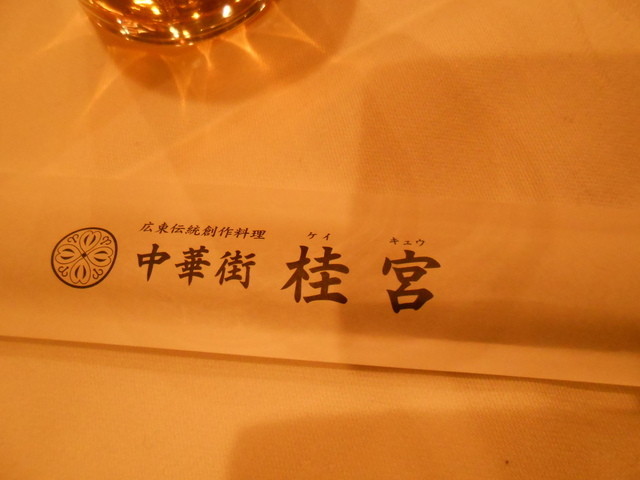 広東伝統創作料理
ケイ キュウ
中華街 桂宮